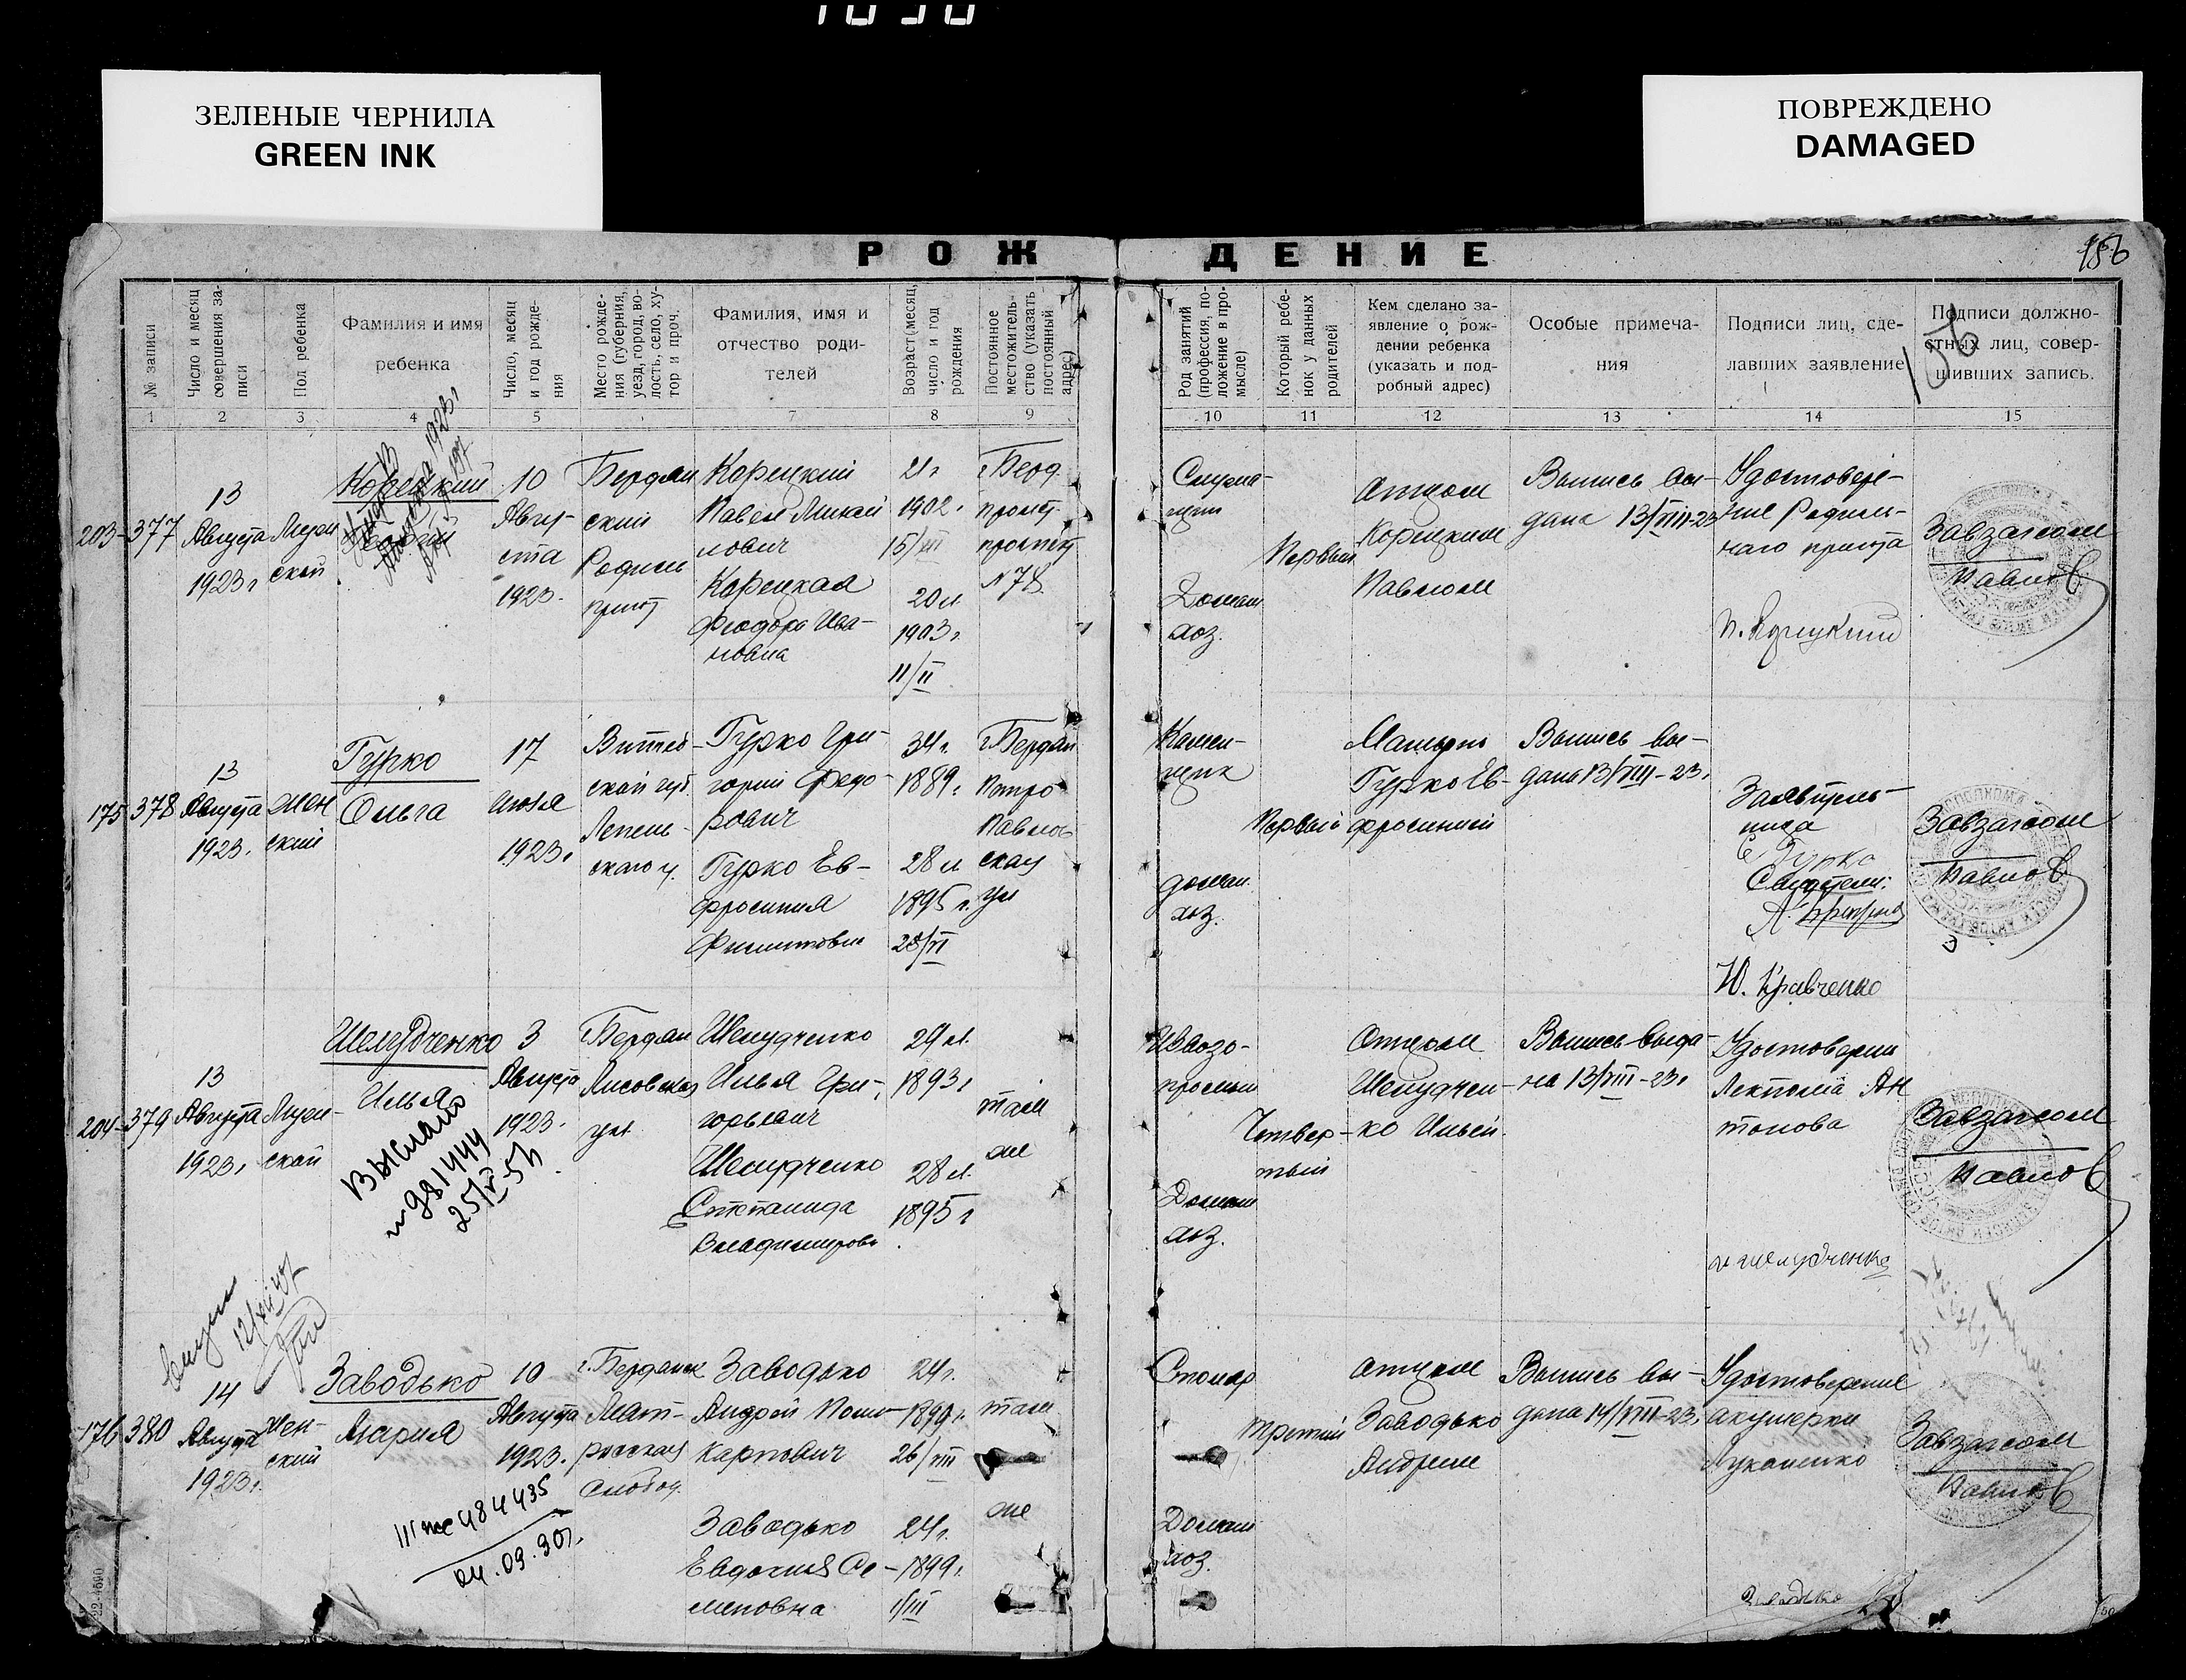 ЗЕЛЕНЫЕ ЧЕРНИЛА
GREEN INK
ПОВРЕЖДЕНО
DAMAGED
РОЖДЕНИЕ
156
№ записи
Число и месяц совершения записи
Пол ребенка
Фамилия и имя
ребенка
Число, месяц и год рождения
Место рождения (губерния, уезд, город, волость, село, хутор и проч.
Фамилия, имя и
отчество роди-
телей
Возраст (месяц, число и год рождения
Постоянное местожительство (указать постоянный адрес)
Род занятий (профессия, положение в промысле)
Который ребенок у данных родителей
Кем сделано за-
явление о рож-
дении ребенка
(указать и под-
робный адрес)
Особые примеча-
ния
Подписи лиц, сде-
лавших заявление
Подписи должно-
стных лиц, совер-
шивших запись.
1 2 3 4 5 7 8 9 10 11 12 13 14 15
203-377
13
Августа
1923 г
Мужской
Корецкий
10
Августа
1923.
Бердянский
Родильн
приют
Корецкий
Павел Михайлович
Корецкая
Феодора Ивановна
21 г
1902 г
15/III
20 л
1903 г
11/II
г. Берд.
пролет.
проспект
N 78.
Домаш
хоз.
Первый
Отцом
Корецким
Павлом
Выпись вы-
дана 13/VIII-23
Удостовере-
ние Родиль-
наго приюта
Завзагсом
Павлов
175-378
13
Августа
1923.
Женский
Гурко
Ольга
17
Июля
1923 г
Витеб-
ской губ.
Лепель-
ского у.
Гурко Гри-
горий Федо-
рович
Гурко Ев-
фросиния
Филипповна
34 г.
1889 г.
28 л
1895 г.
28/VI
г. Бердян
Петро
Павлов
ская
ул
Камен-
щик
Домаш.
хоз.
Первый
Матерью
Гурко Ев-
фросинией
Выпись вы-
дана 13/VIII-23 г
Заявитель-
ница
Е Гурко
Свидетели:
Ю. Кравченко
Завзагсом
Павлов
204-379
13
Августа
1923 г
Мужской
Шелудченко
Илья
Выслано
25/V 51
3
Августа
1923.
г. Бердян
Лисовская
ул.
Шелудченко
Илья Гри-
горьевич
Шелудченко
Степанида
Владимировн
29 л.
1893 г
28 л.
1895 г
там
же
Домаш
хоз.
Четвер-
тый
Отцом
Шелудчен-
ко Ильей.
Выпись выда-
на 13/VIII-23 г
Удостоверен
Лекпома Ан
тонова
и шелудченко
Завзагсом
Павлов
176-380
14
Августа
1923 г.
Женский
Заводько
Мария
484435
04.09.90г.
10
Августа
1923.
г. Бердянск
Мат-
росская
слобод.
Заводько
Андрей Поли-
карпович
Заводько
Евдокия Се-
меновна
24 г.
1899 г.
26/VIII
24 г.
1899 г.
1/III
там
же
Столяр
Домаш
хоз.
Третий
Отцом
Заводько
Андреем
Выпись вы-
дана 14/VIII-23 г
Удостоверение
акушерки
Луканенко
Заводько
Завзагсом
Павлов